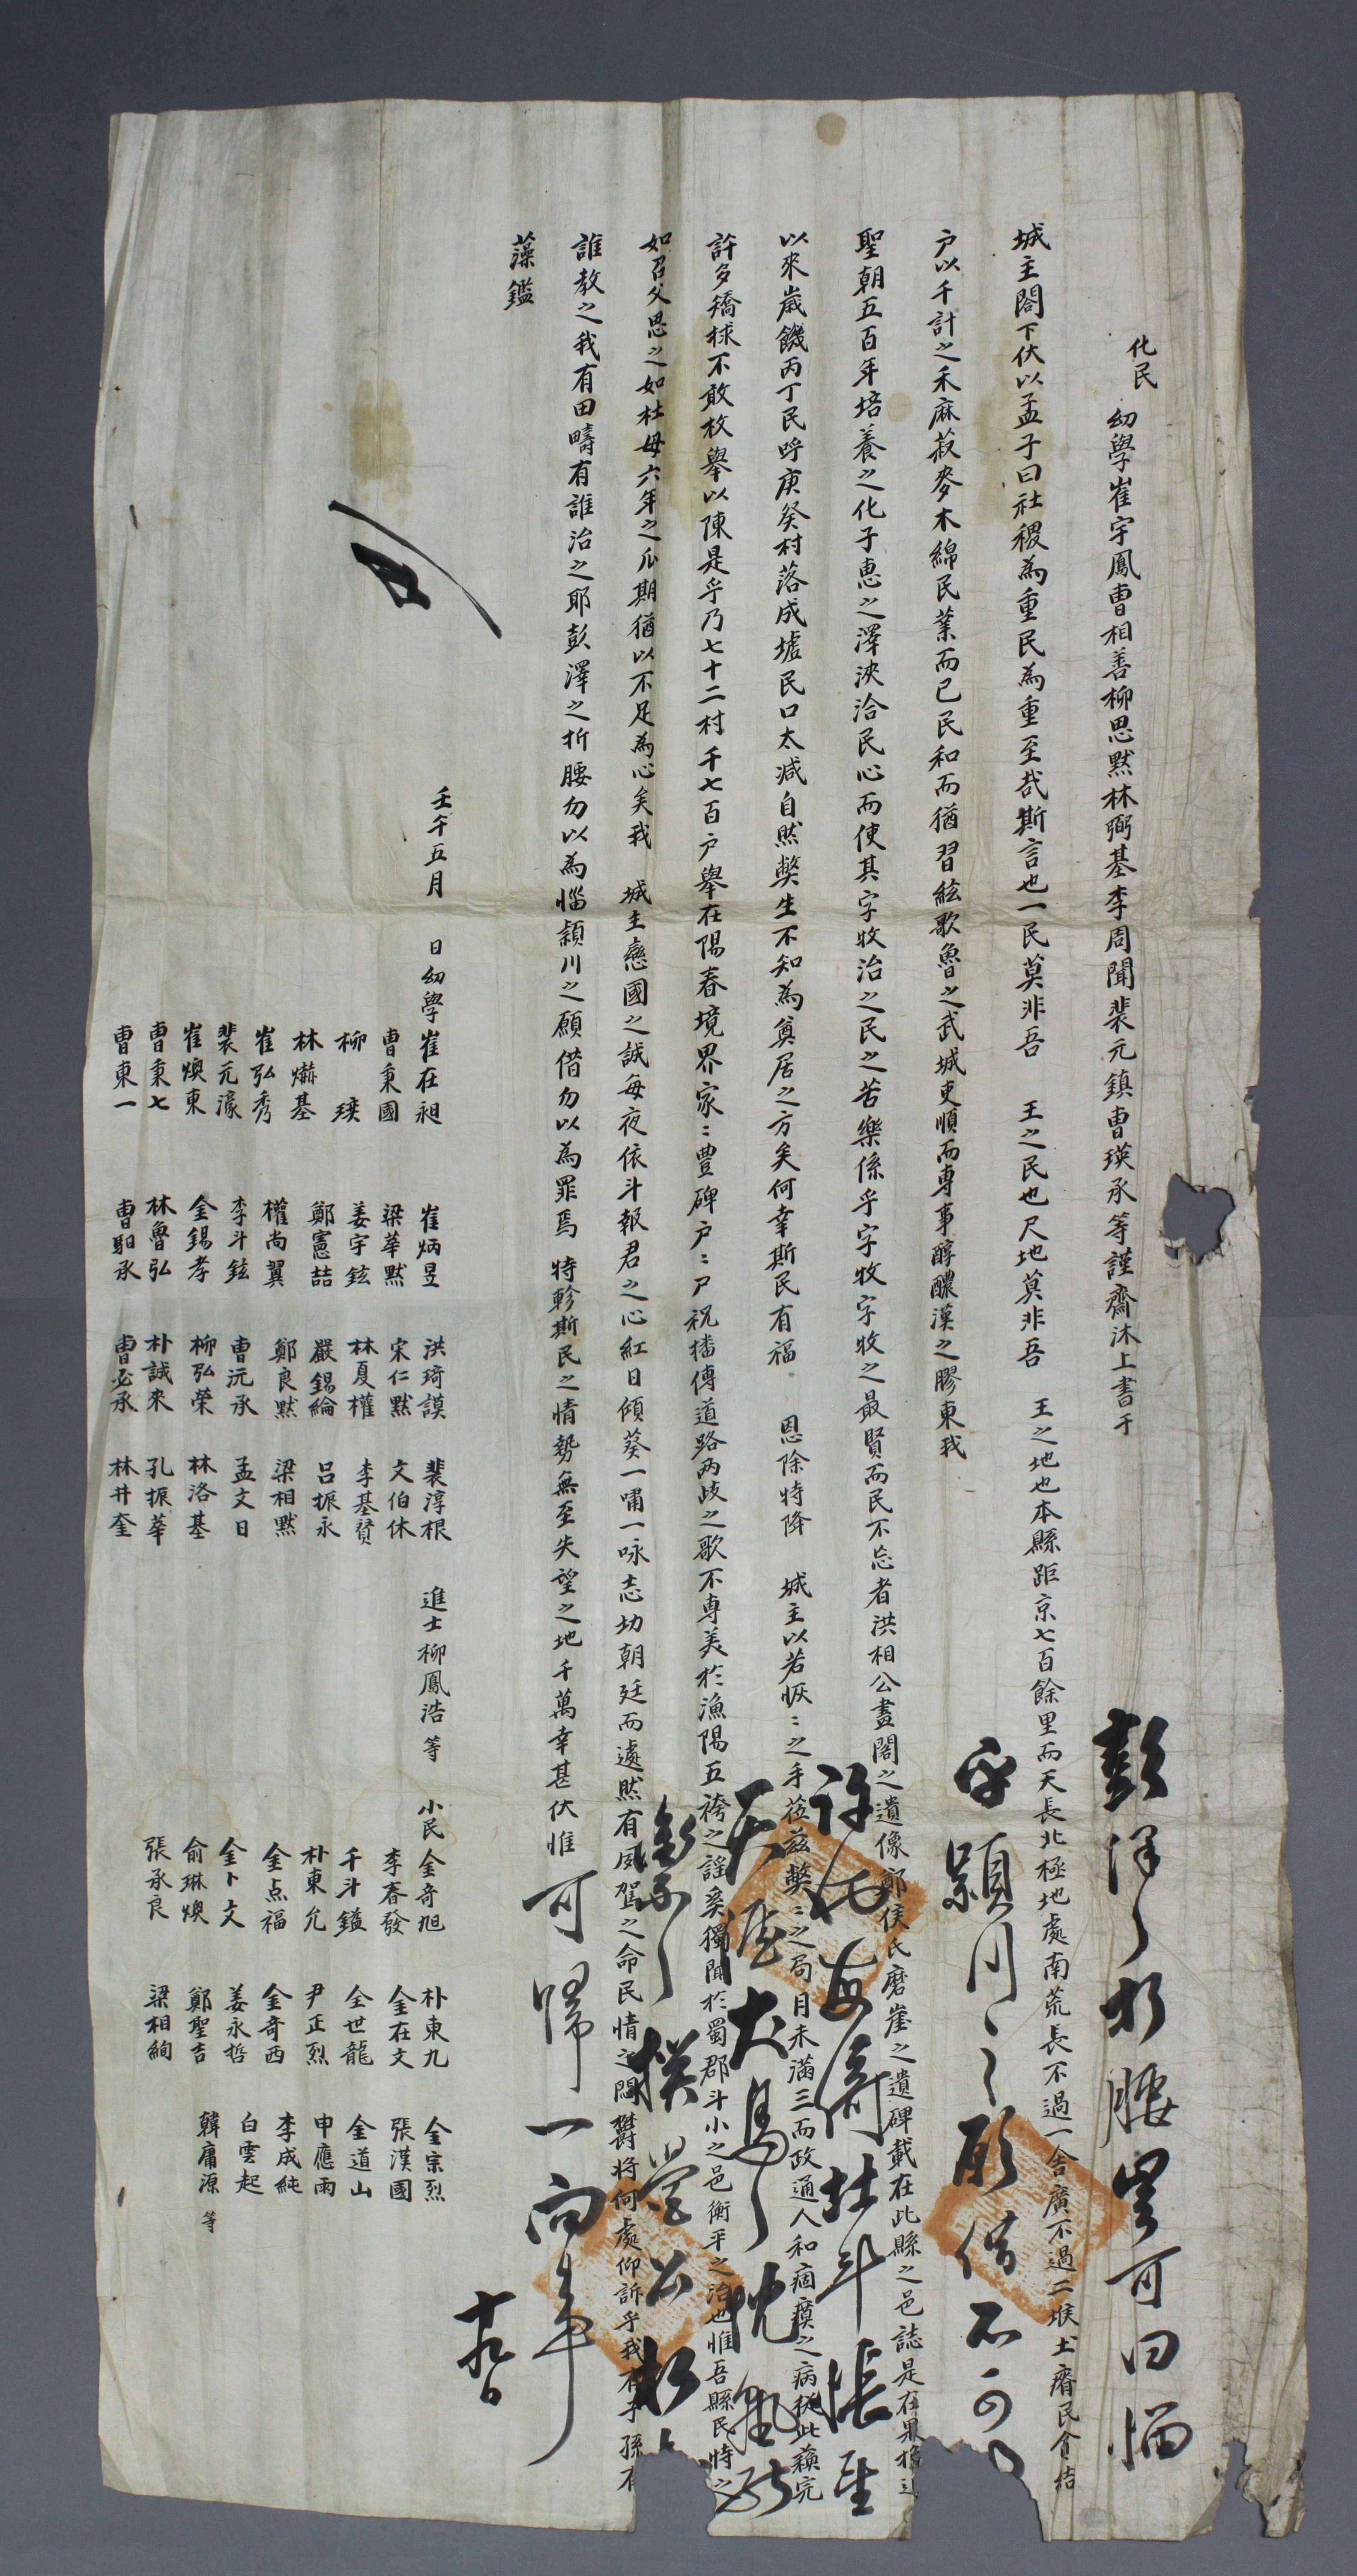 化民
幼學崔宇鳳曺相善柳思默林弼基李周聞裴元鎮曺瑛承等謹齋沐上書于
城主閤下伏以孟子曰社稷為重民為重至哉斯言也一民莫非吾 王之民也尺地莫非吾 王之地也本縣距京七百餘里而天長北極地處南荒長不過一舍廣不過二堠土瘠民貧結
戶以千計之禾麻菽麥木綿民業而已民和而猶習絃歌魯之武城吏順而專事醇醲漢之膠東我
聖朝五百年培養之化子惠之澤浹洽民心而使其字牧治之民之苦樂係乎字牧字牧之最賢而民不忘者洪相公畫閣之遺像鄭侯氏磨崖之遺碑載在此縣之邑誌是在果
以來歲饑丙丁民呼庚癸村落成墟民口太减自然獘生不知為奠居之方矣何幸斯民有福 恩除特降 城主以若恢〻之手莅兹獘〻之局月未滿三而政通人和痼瘼之病從此蘓完
許多矯捄不敢枚舉以陳是乎乃七十二村千七百戶舉在陽春境界家〻豊碑戶〻尸祝播傳道路兩歧之歌不專美於漁陽五袴之謡奚獨聞於蜀郡斗小之邑衡平之治也惟吾縣民恃之
如召父思之如杜母六年之瓜期猶以不足為心矣我 城主戀國之誠每夜依斗報君之心紅日傾葵一嘯一咏志切朝廷而遽然有夙駕之命民情之悶欝將何處仰訴乎我有子孫有
誰教之我有田疇有誰治之耶彭澤之折腰勿以為惱潁川之願借勿以為罪焉 特軫斯民之情勢無至失望之地千萬幸甚伏惟
藻鑑
壬午五月 日幼學崔在昶 崔炳昱 洪琦謨 裴淳根 進士柳鳳浩等 小民金奇旭 朴東九 金宗烈
曺秉國 梁華默 宋仁默 文伯休 李春發 金在文 張漢國
柳瑛 姜宇鉉 林夏權 李基贇 千斗鎰 全世龍 金道山
林爀基 鄭憲喆 嚴錫綸 呂振永 朴東允 尹正烈 申應雨
崔弘秀 權尚翼 鄭良默 梁相默 金点福 金奇西 李成純
裴元濠 李斗鉉 曺沅承 孟文日 金卜文 姜永哲 白雲起
崔煥東 金錫孝 柳弘榮 林洛基 俞琳煥 鄭聖吉 韓庸源 等
曺秉七 林魯弘 朴誠來 孔振華 張承良 梁相絢
曺東一 曺馹承 曺必承 林井奎
彭澤之折腰豈可曰惱
乎潁川之願借不可
許
天涯犬馬之
可歸一向事
十九日